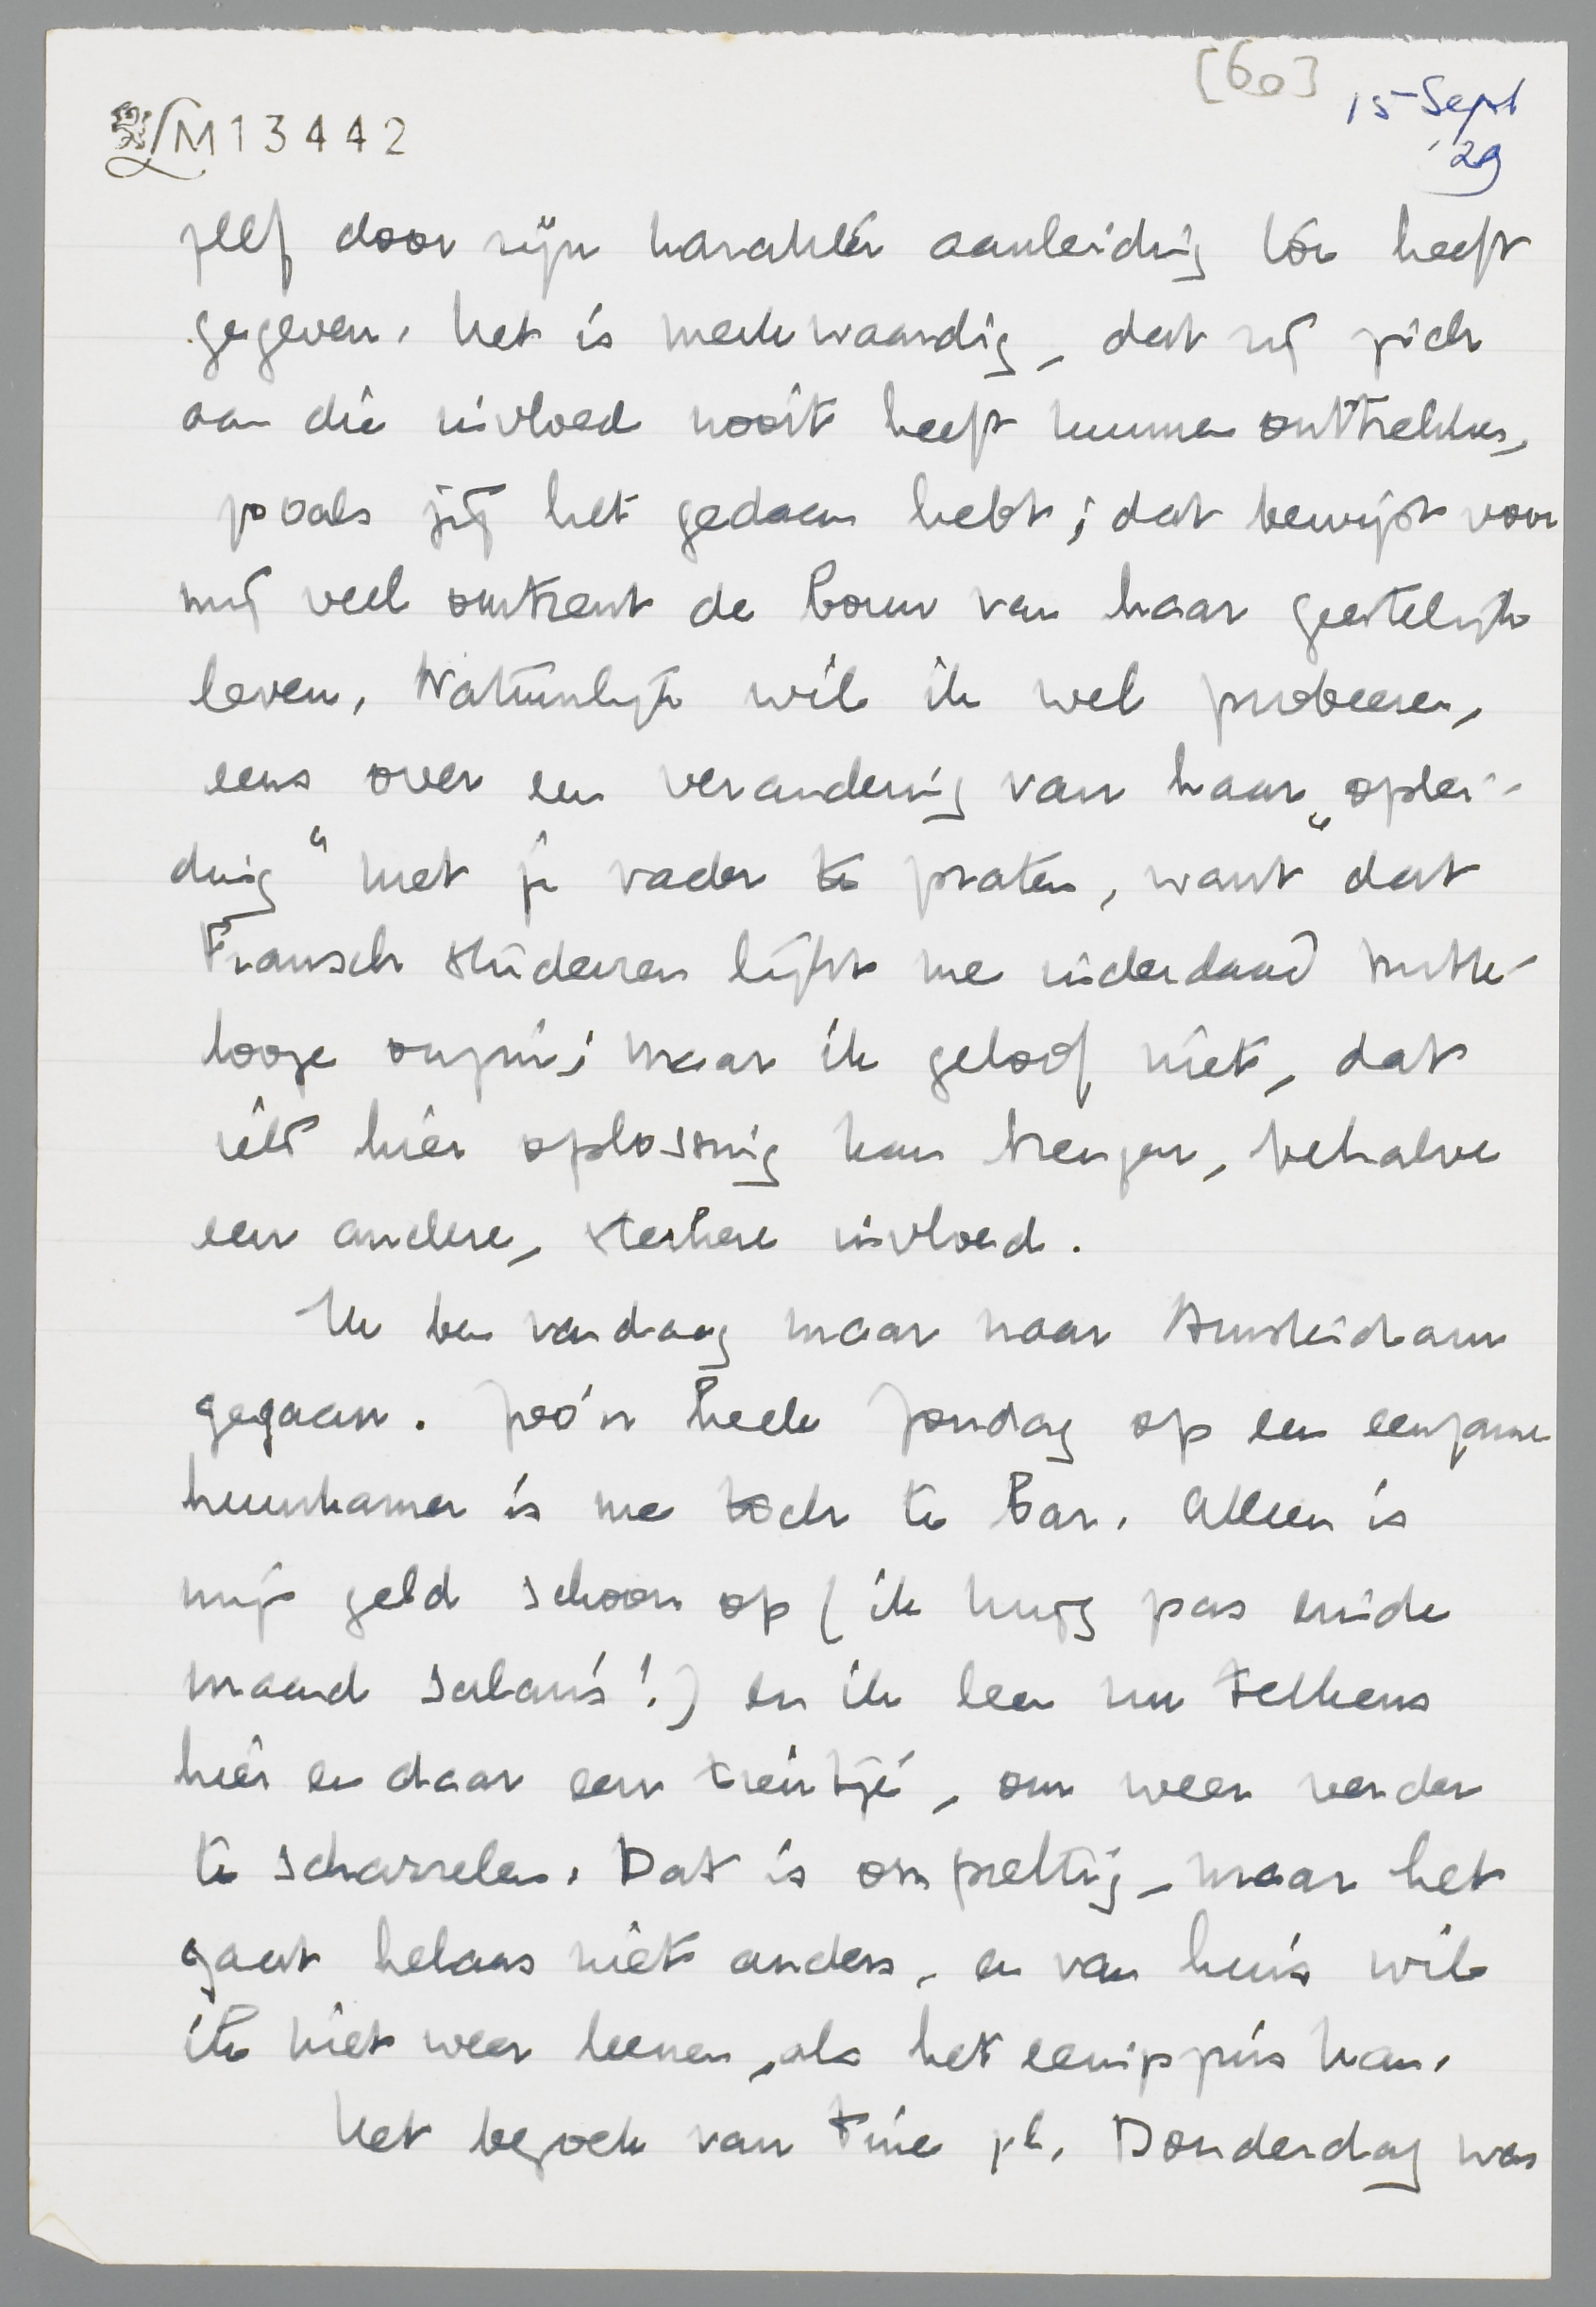 [60]
15 Sept
'29
LM13442
zelf door zijn karakter aanleiding toe heeft
gegeven. Het is merkwaardig, dat zij zich
aan die invloed nooit heeft kunnen onttrekken,
zooals jij het gedaan hebt; dat bewijst voor
mij veel omtrent de bouw van haar geestelijk
leven. Natuurlijk wil ik wel probeeren,
eens over een verandering van haar „oplei-
ding" met je vader te praten, want dat
Fransch studeeren lijkt me inderdaad nutte-
looze onzin; maar ik geloof niet, dat
iets hier oplossing kan brengen, behalve
een andere, sterkere invloed.
Ik ben vandaag maar naar Amsterdam
gegaan. Zoo'n heele Zondag op een eenzame
huurkamer is me toch te bar. Alleen is
mijn geld schoon op (ik krijg pas einde
maand salaris!) en ik leen nu telkens
hier en daar een tientje, om weer verder
te scharrelen. Dat is onprettig, maar het
gaat helaas niet anders, en van huis wil
ik niet weer leenen, als het eenigszins kan.
Het bezoek van Tine j.l. Donderdag was